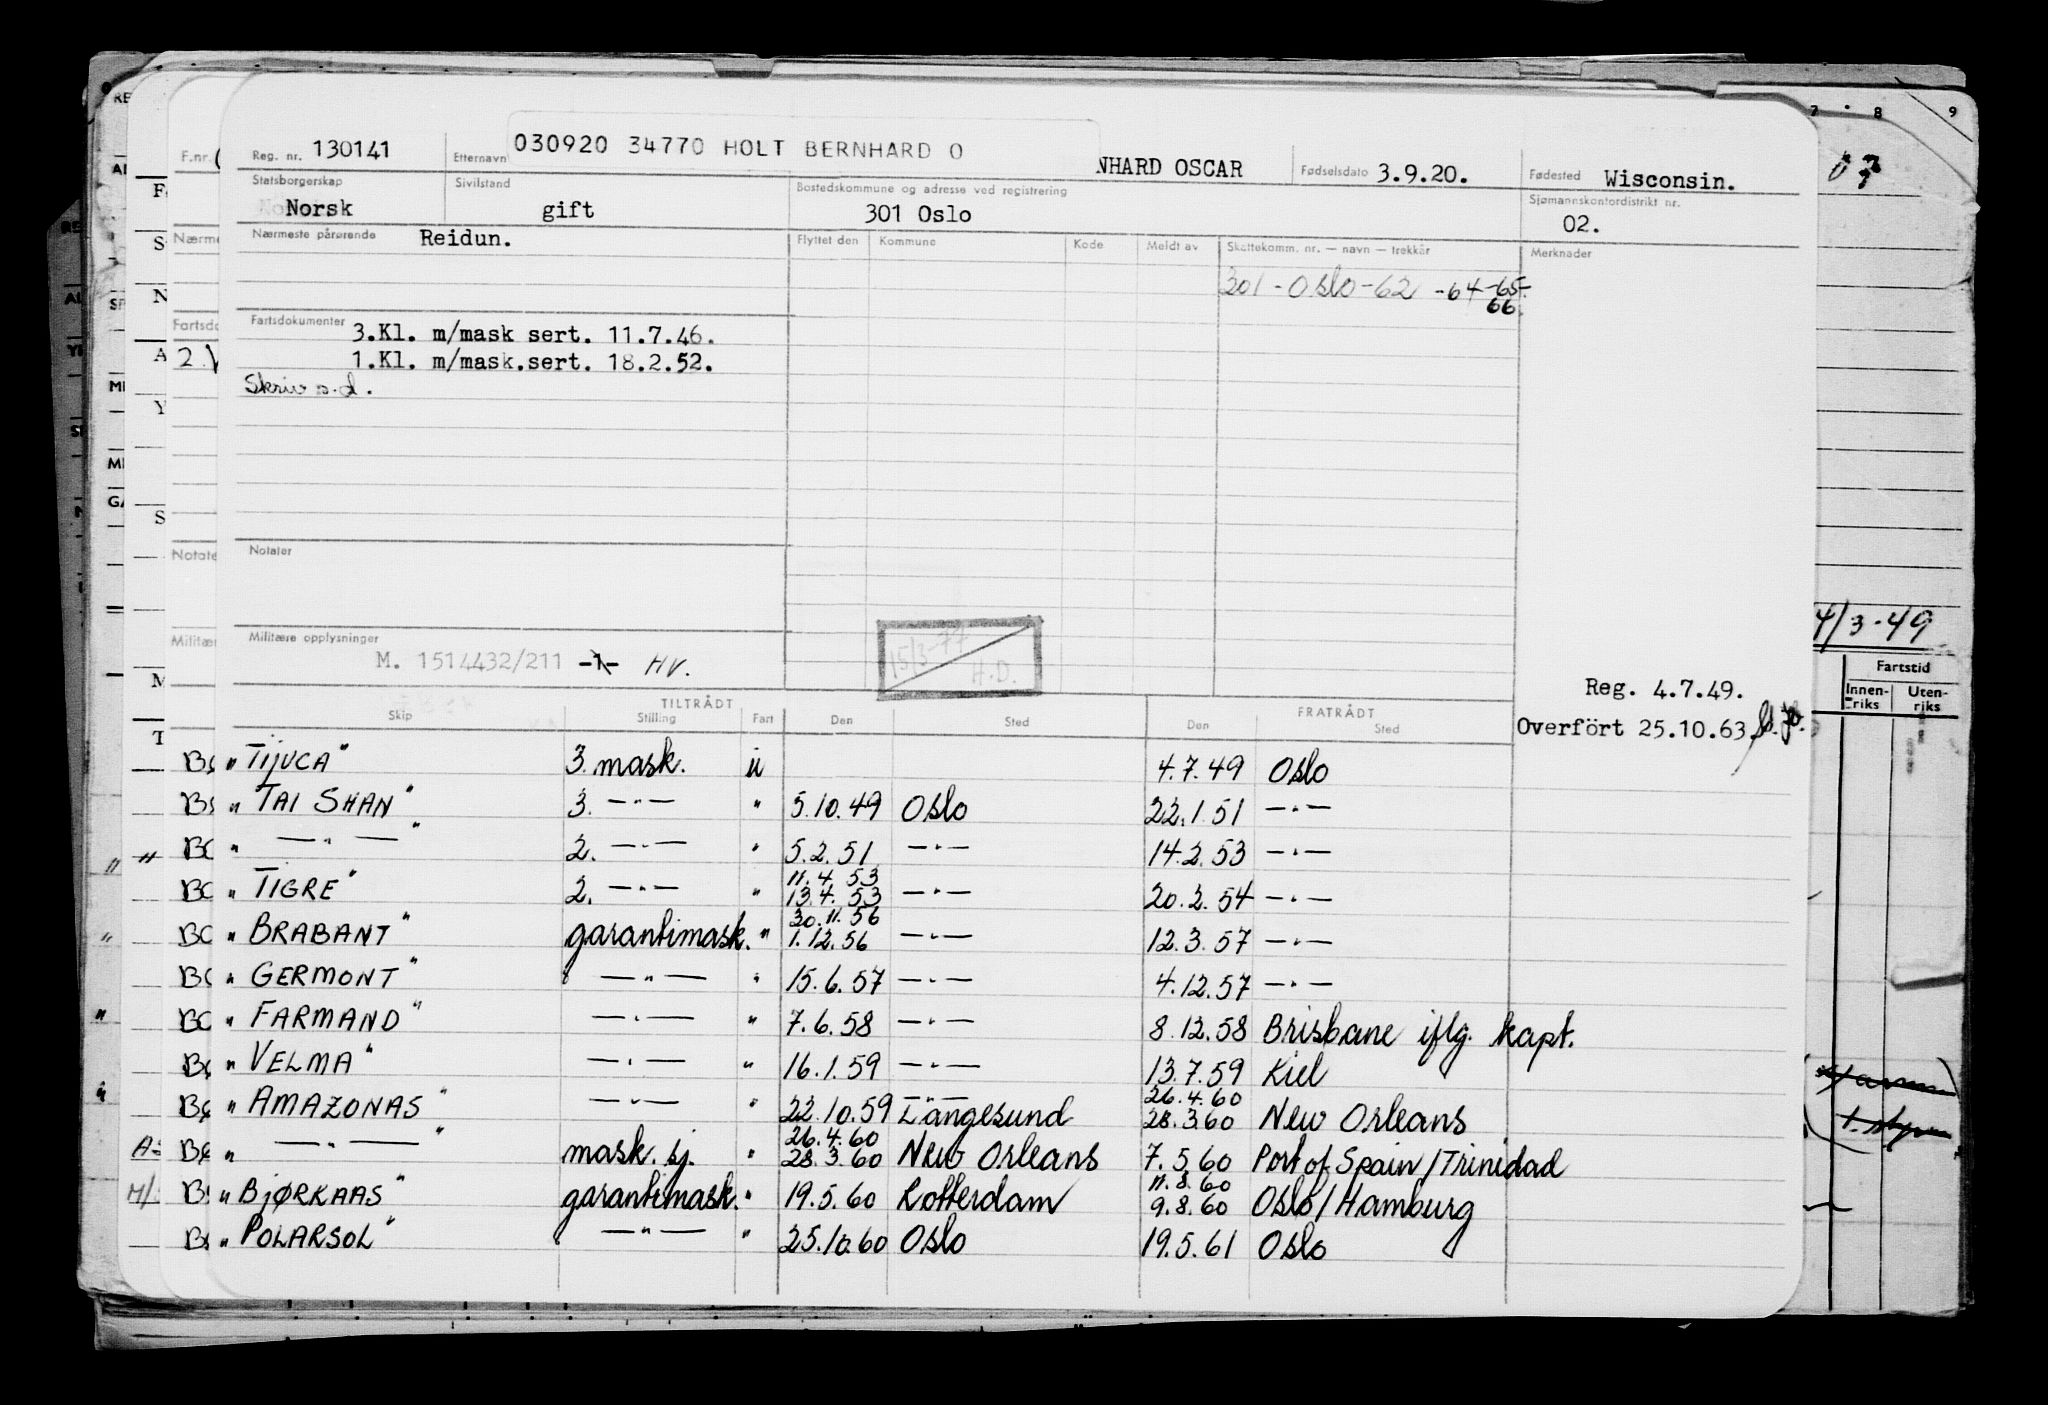 Reg. nr. 130141 Etternavn 030920 34770 HOLT BERNHARD O NHARD OSCAR Fødselsdato 3.9.20. Fødested Wisconsin.
Statsborgerskap Norsk Sivilstand gift Bostedskommune og adresse ved registrering 301 Oslo Sjømannskontordistrikt nr. 02.
Nærmeste pårørende Reidun. Flyttet den Kommune Kode Meldt av Skattekomm. nr. — navn — trekkår Merknader
301 - Oslo - 62 - 64 - 65 -
66
Fartsdokumenter 3.Kl. m/mask sert. 11.7.46.
1.Kl. m/mask.sert. 18.2.52.
Skriv s.d.
Notater
Militære opplysninger
M. 1514432/211 -1- HV.
15/3-77 H.D.
4/3-49
Fartstid
Innen-riks Uten-riks
Reg. 4.7.49.
Overfört 25.10.63
TILTRÅDT FRATRÅDT
Skip Stilling Fart Den Sted Den Sted
" TIJUCA" 3. mask. u 4.7.49 Oslo
" TAI SHAN" 3. —"— " 5.10.49 Oslo 22.1.51 —"—
" —"—" 2. —"— " 5.2.51 —"— 14.2.53 —"—
11.4.53
" TIGRE" 2. —"— " 13.4.53 —"— 20.2.54 —"—
30.11.56
" BRABANT" garantimask. " 1.12.56 —"— 12.3.57 —"—
" GERMONT" —"— " 15.6.57 —"— 4.12.57 —"—
" FARMAND" —"— " 7.6.58 —"— 8.12.58 Brisbane iflg. kapt.
" VELMA" —"— " 16.1.59 —"— 13.7.59 Kiel
26.4.60
" AMAZONAS" —"— " 22.10.59 Langesund 28.3.60 New Orleans
26.4.60
" —"—" mask. sj. " 28.3.60 New Orleans 7.5.60 Port of Spain/Trinidad
11.8.60
" BJØRKAAS" garantimask. " 19.5.60 Rotterdam 9.8.60 Oslo/Hamburg
" POLARSOL" —"— " 25.10.60 Oslo 19.5.61 Oslo